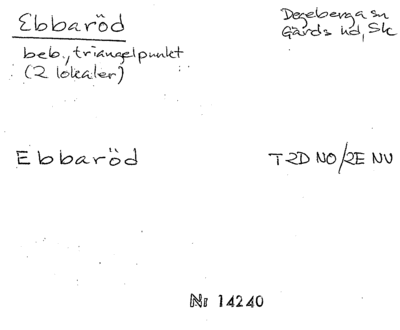 Ebbaröd
Degeberga sn
Gärds hd, Sk
beb., triangelpunkt
(2 lokaler)
Ebbaröd
T2D NO/2E NV
Nr 14240